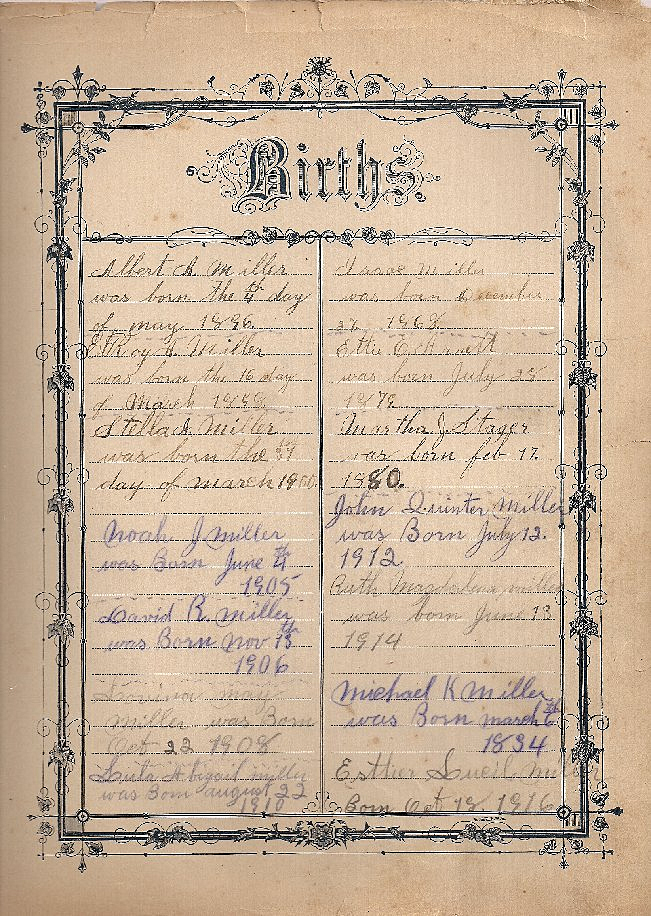 Births.
Albert A Miller
was born the 4th day
of may 1896
Roy H. Miller
was born the 16 day
of March 1898
Stella A Miller
was born the
day of march 1900
Noah J. Miller
was Born June 4th
1905
David R. Miller
was Born Nov 13th
1906
may
Miller was Born
Oct 22 1908
Abigail Miller
was Born august 22
1910
Isaac Miller
was born December
27 1868
Ettie
was born July 28
1878
Martha J. Stager
was born feb 17.
1880.
John Quinter Miller
was Born July 12.
1912
Ruth Magdalena Miller
was born June 13
1914
Michael K Miller
was Born march 6th
1834
Esther Lucil Miller
Born Oct 18 1916